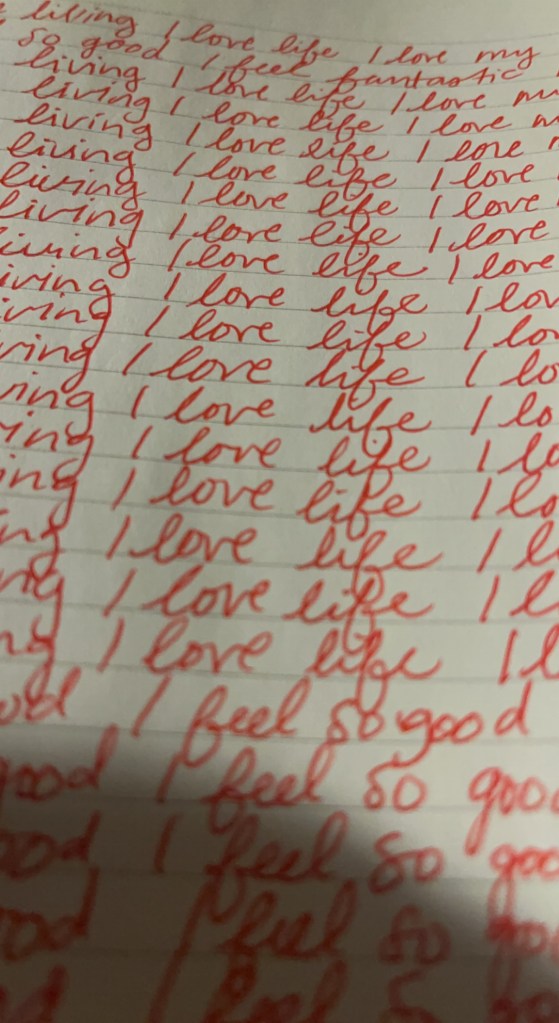 living I love life I love my
so good I feel fantastic
living I love life I love
living I love life I love
living I love life I love
living I love life I love
living I love life I love
living I love life I love
living I love life I love
iving I love life I lov
iving I love life I lo
ring I love life I lo
ing I love life I lo
ing I love life I lo
ing I love life I lo
ng I love life I l
ng I love life I l
ng I love life I l
od I feel so good
good I feel so goo
ood I feel so goo
od I feel so go
d I feel so